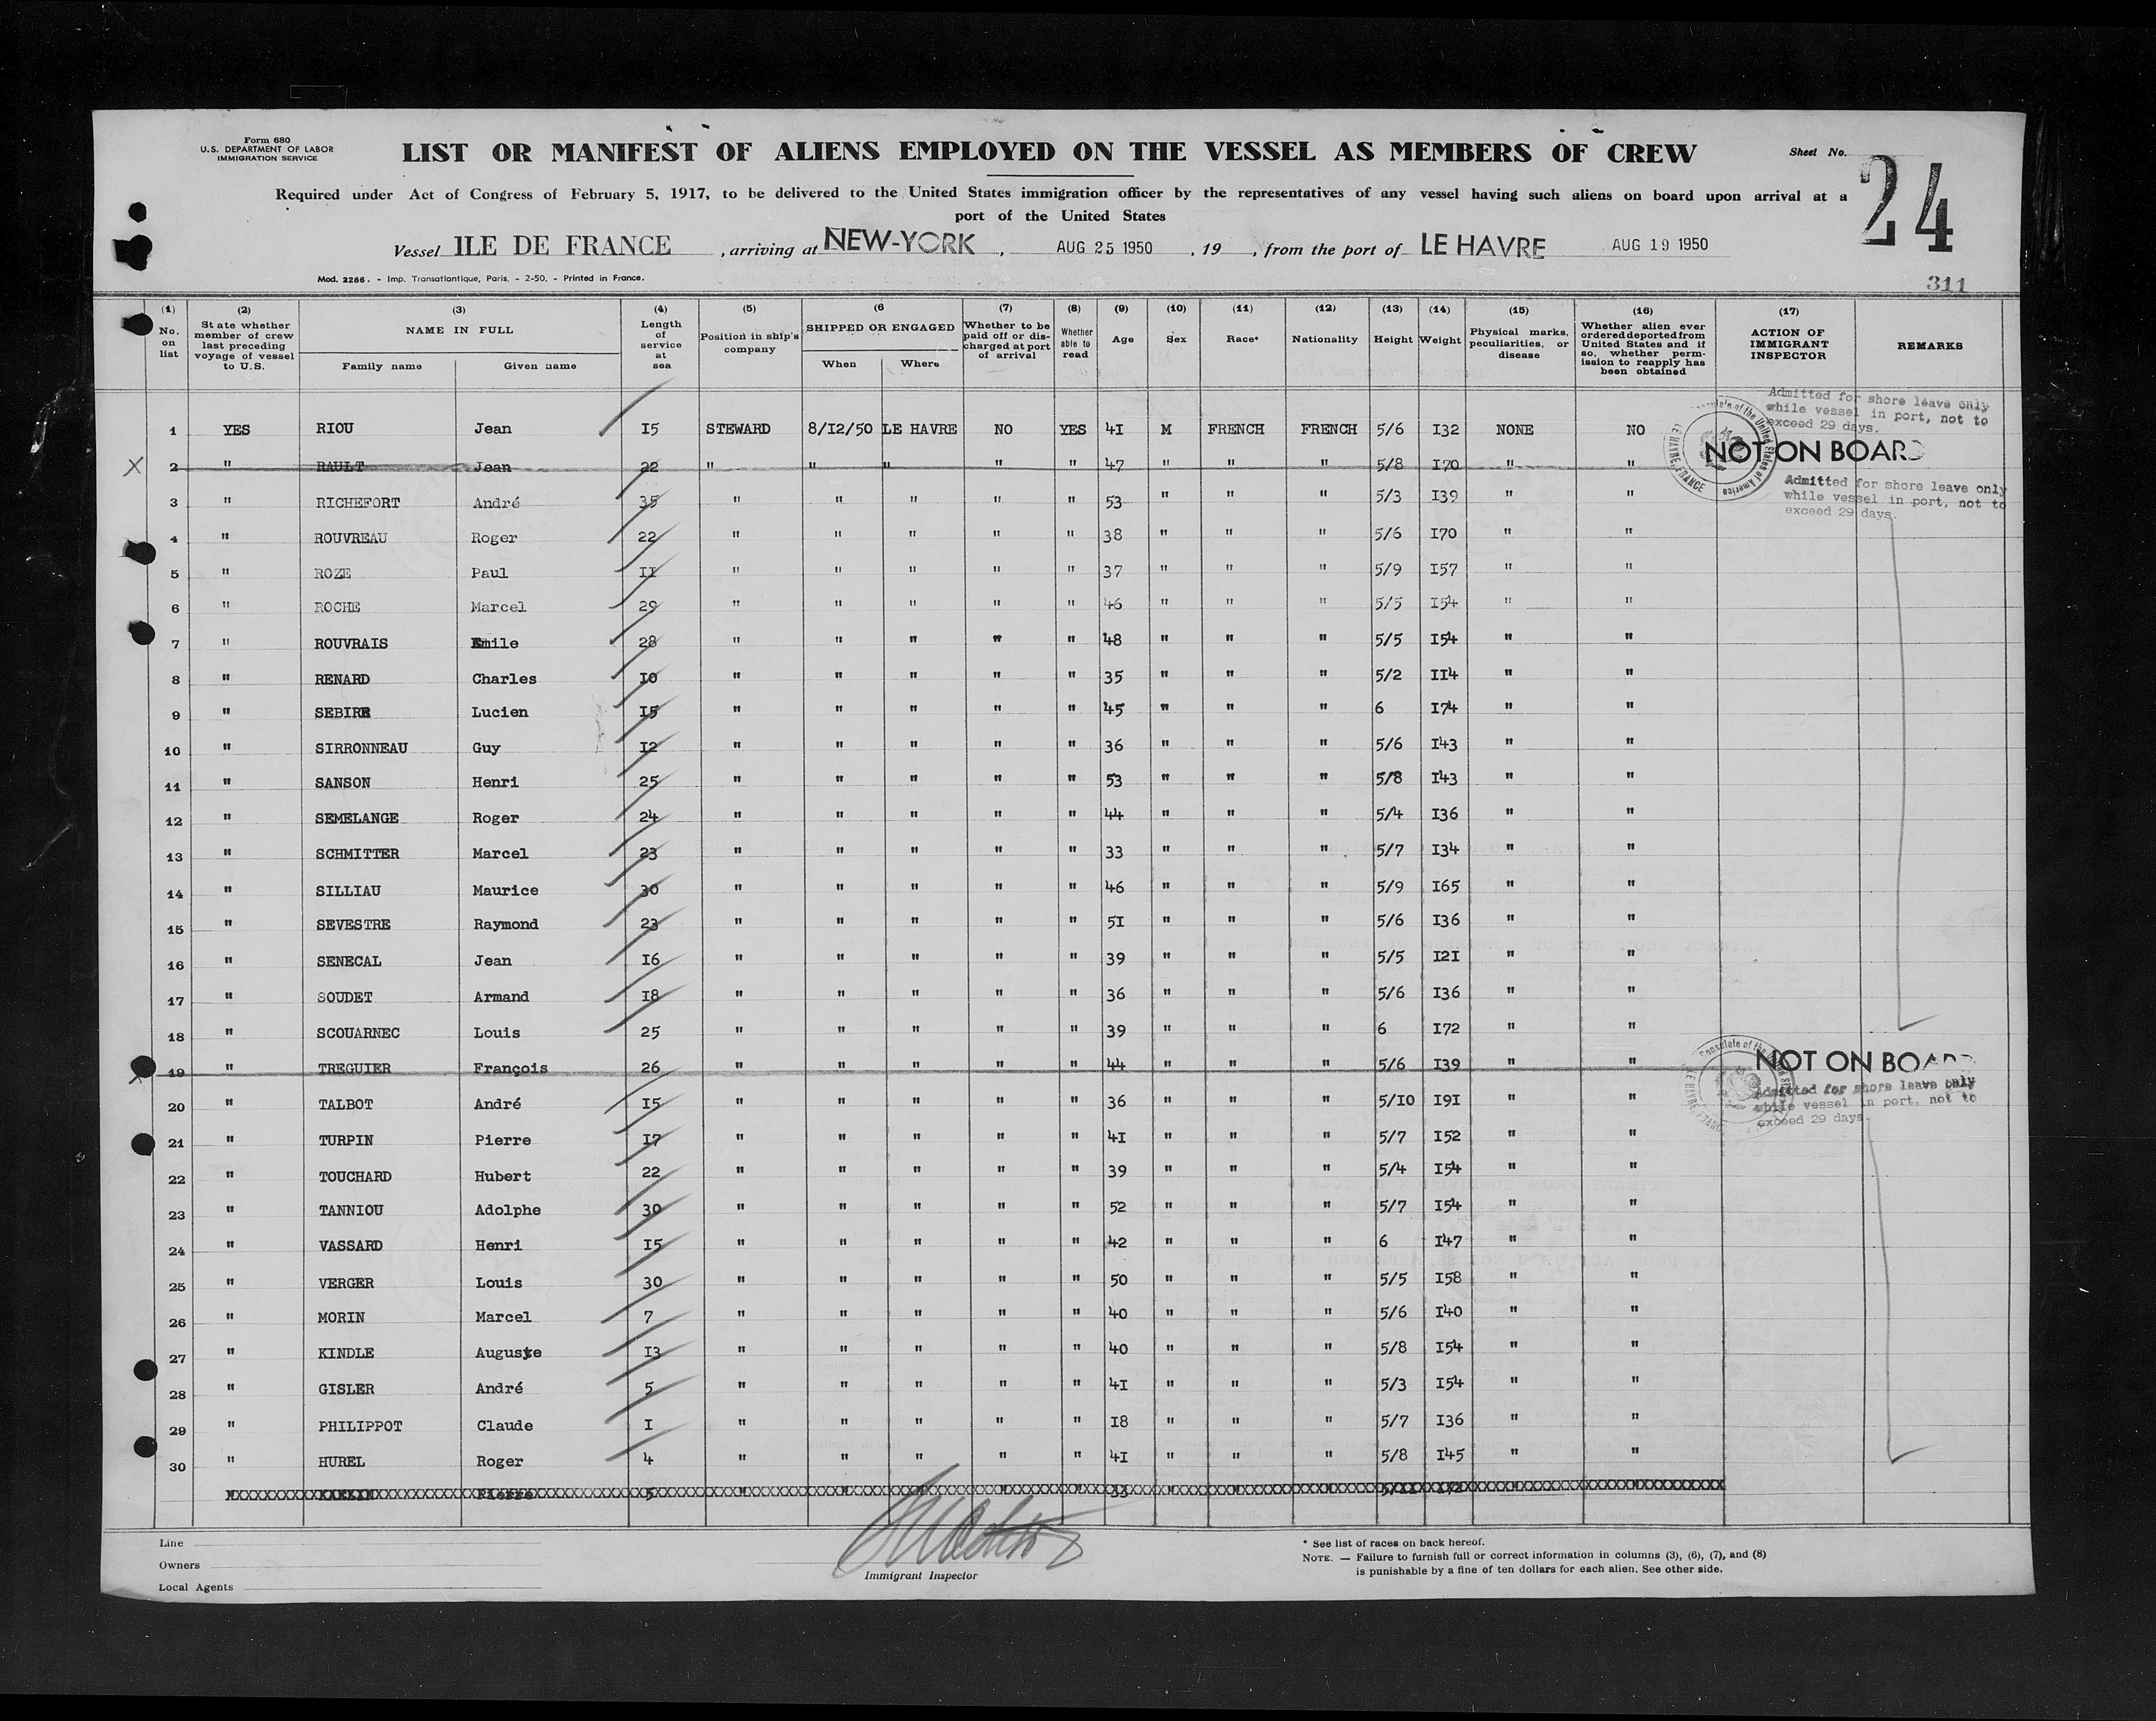 Form 680
U.S. DEPARTMENT OF LABOR
IMMIGRATION SERVICE
LIST OR MANIFEST OF ALIENS EMPLOYED ON THE VESSEL AS MEMBERS OF CREW
Sheet No.
24
Required under Act of Congress of February 5, 1917, to be delivered to the United States immigration officer by the representatives of any vessel having such aliens on board upon arrival at a
port of the United States
Vessel ILE DE FRANCE, arriving at NEW-YORK, AUG 25 1950, 19 , from the port of LE HAVRE AUG 19 1950
Mod. 2286. - Imp. Transatlantique, Paris. - 2-50. - Printed in France.
311
(1) No. on list (2) State whether member of crew last preceding voyage of vessel to U.S. (3) NAME IN FULL Family name Given name (4) Length of service at sea (5) Position in ship's company (6 SHIPPED OR ENGAGED When Where (7) Whether to be paid off or discharged at port of arrival (8) Whether able to read (9) Age (10) Sex (11) Race* (12) Nationality (13) Height (14) Weight (15) Physical marks, peculiarities, or disease (16) Whether alien ever ordered deported from United States and if so, whether permission to reapply has been obtained (17) ACTION OF IMMIGRANT INSPECTOR REMARKS
Admitted for shore leave only
while vessel in port, not to
exceed 29 days.
1 YES RIOU Jean I5 STEWARD 8/I2/50 LE HAVRE NO YES 4I M FRENCH FRENCH 5/6 I32 NONE NO
NOT ON BOARD
X 2 " RAULT Jean 22 " " " " " 47 " " " 5/8 I70 " "
Admitted for shore leave only
while vessel in port, not to
exceed 29 days.
3 " RICHEFORT André 35 " " " " " 53 " " " 5/3 I39 " "
4 " ROUVREAU Roger 22 " " " " " 38 " " " 5/6 I70 " "
5 " ROZE Paul II " " " " " 37 " " " 5/9 I57 " "
6 " ROCHE Marcel 29 " " " " " 46 " " " 5/5 I54 " "
7 " ROUVRAIS Emile 28 " " " " " 48 " " " 5/5 I54 " "
8 " RENARD Charles I0 " " " " " 35 " " " 5/2 II4 " "
9 " SEBIRE Lucien I5 " " " " " 45 " " " 6 I74 " "
10 " SIRRONNEAU Guy I2 " " " " " 36 " " " 5/6 I43 " "
11 " SANSON Henri 25 " " " " " 53 " " " 5/8 I43 " "
12 " SEMELANGE Roger 24 " " " " " 44 " " " 5/4 I36 " "
13 " SCHMITTER Marcel 23 " " " " " 33 " " " 5/7 I34 " "
14 " SILLIAU Maurice 30 " " " " " 46 " " " 5/9 I65 " "
15 " SEVESTRE Raymond 23 " " " " " 5I " " " 5/6 I36 " "
16 " SENECAL Jean I6 " " " " " 39 " " " 5/5 I2I " "
17 " SOUDET Armand I8 " " " " " 36 " " " 5/6 I36 " "
18 " SCOUARNEC Louis 25 " " " " " 39 " " " 6 I72 " "
NOT ON BOARD
X 19 " TREGUIER François 26 " " " " " 44 " " " 5/6 I39 " "
Admitted for shore leave only
while vessel in port, not to
exceed 29 days.
20 " TALBOT André I5 " " " " " 36 " " " 5/I0 I9I " "
21 " TURPIN Pierre I7 " " " " " 4I " " " 5/7 I52 " "
22 " TOUCHARD Hubert 22 " " " " " 39 " " " 5/4 I54 " "
23 " TANNIOU Adolphe 30 " " " " " 52 " " " 5/7 I54 " "
24 " VASSARD Henri I5 " " " " " 42 " " " 6 I47 " "
25 " VERGER Louis 30 " " " " " 50 " " " 5/5 I58 " "
26 " MORIN Marcel 7 " " " " " 40 " " " 5/6 I40 " "
27 " KINDLE Auguste I3 " " " " " 40 " " " 5/8 I54 " "
28 " GISLER André 5 " " " " " 4I " " " 5/3 I54 " "
29 " PHILIPPOT Claude I " " " " " I8 " " " 5/7 I36 " "
30 " HUREL Roger 4 " " " " " 4I " " " 5/8 I45 " "
Pierre 5 33
Line
Owners
Local Agents
Immigrant Inspector
* See list of races on back hereof.
NOTE. — Failure to furnish full or correct information in columns (3), (6), (7), and (8)
is punishable by a fine of ten dollars for each alien. See other side.